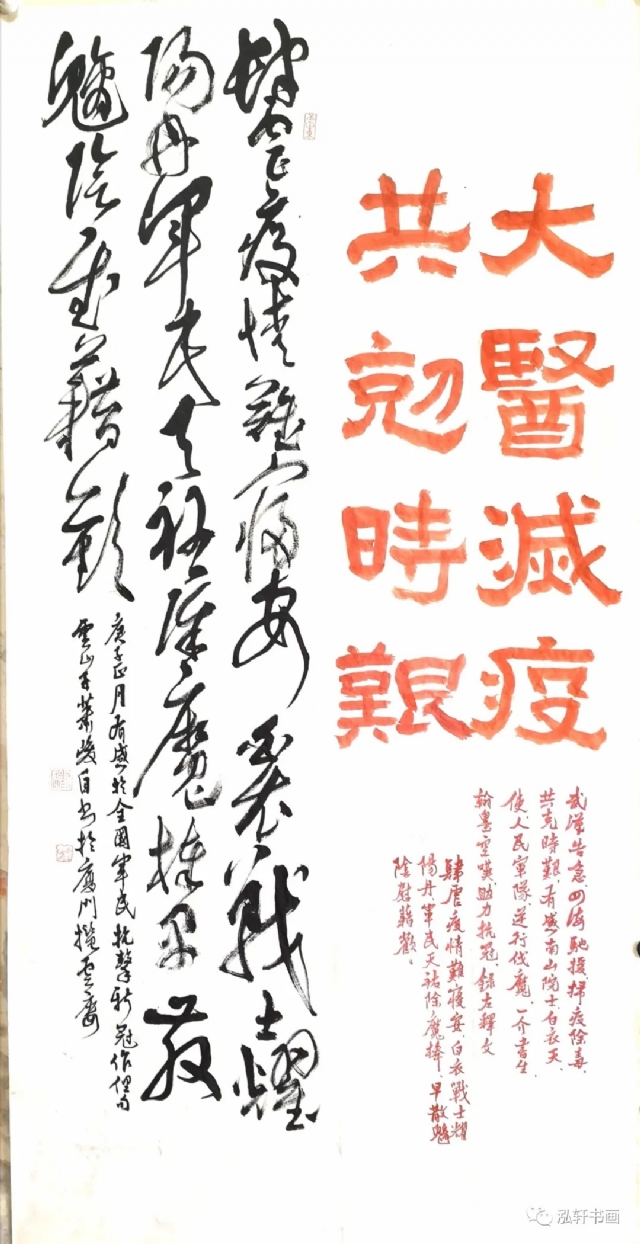 大醫滅疫
共克時艱
武漢告急、四海馳援、掃疫除毒、
共克時艱、有感南山院士白衣天
使、人民軍隊逆行伐魔、一介書生
翰墨空嘆助力抗冠、錄左釋文
肆虐疫情難寢安、白衣戰士耀
陽丹、軍民天祐除魔棒、早散魑
陰慰藉歡、
肆虐疫情難寢安白衣戰士耀
陽丹軍民天祐除魔棒早散
魑陰慰藉歡
庚子正月有感於全國軍民抗擊新冠作俚句
雲山
自書於
門攬雲
泓轩书画